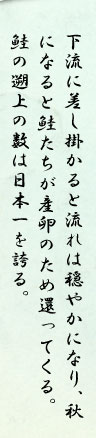 下流に差し掛かると流れは穏やかになり、秋
になると鮭たちが産卵のため還ってくる。
鮭の遡上の数は日本一を誇る。